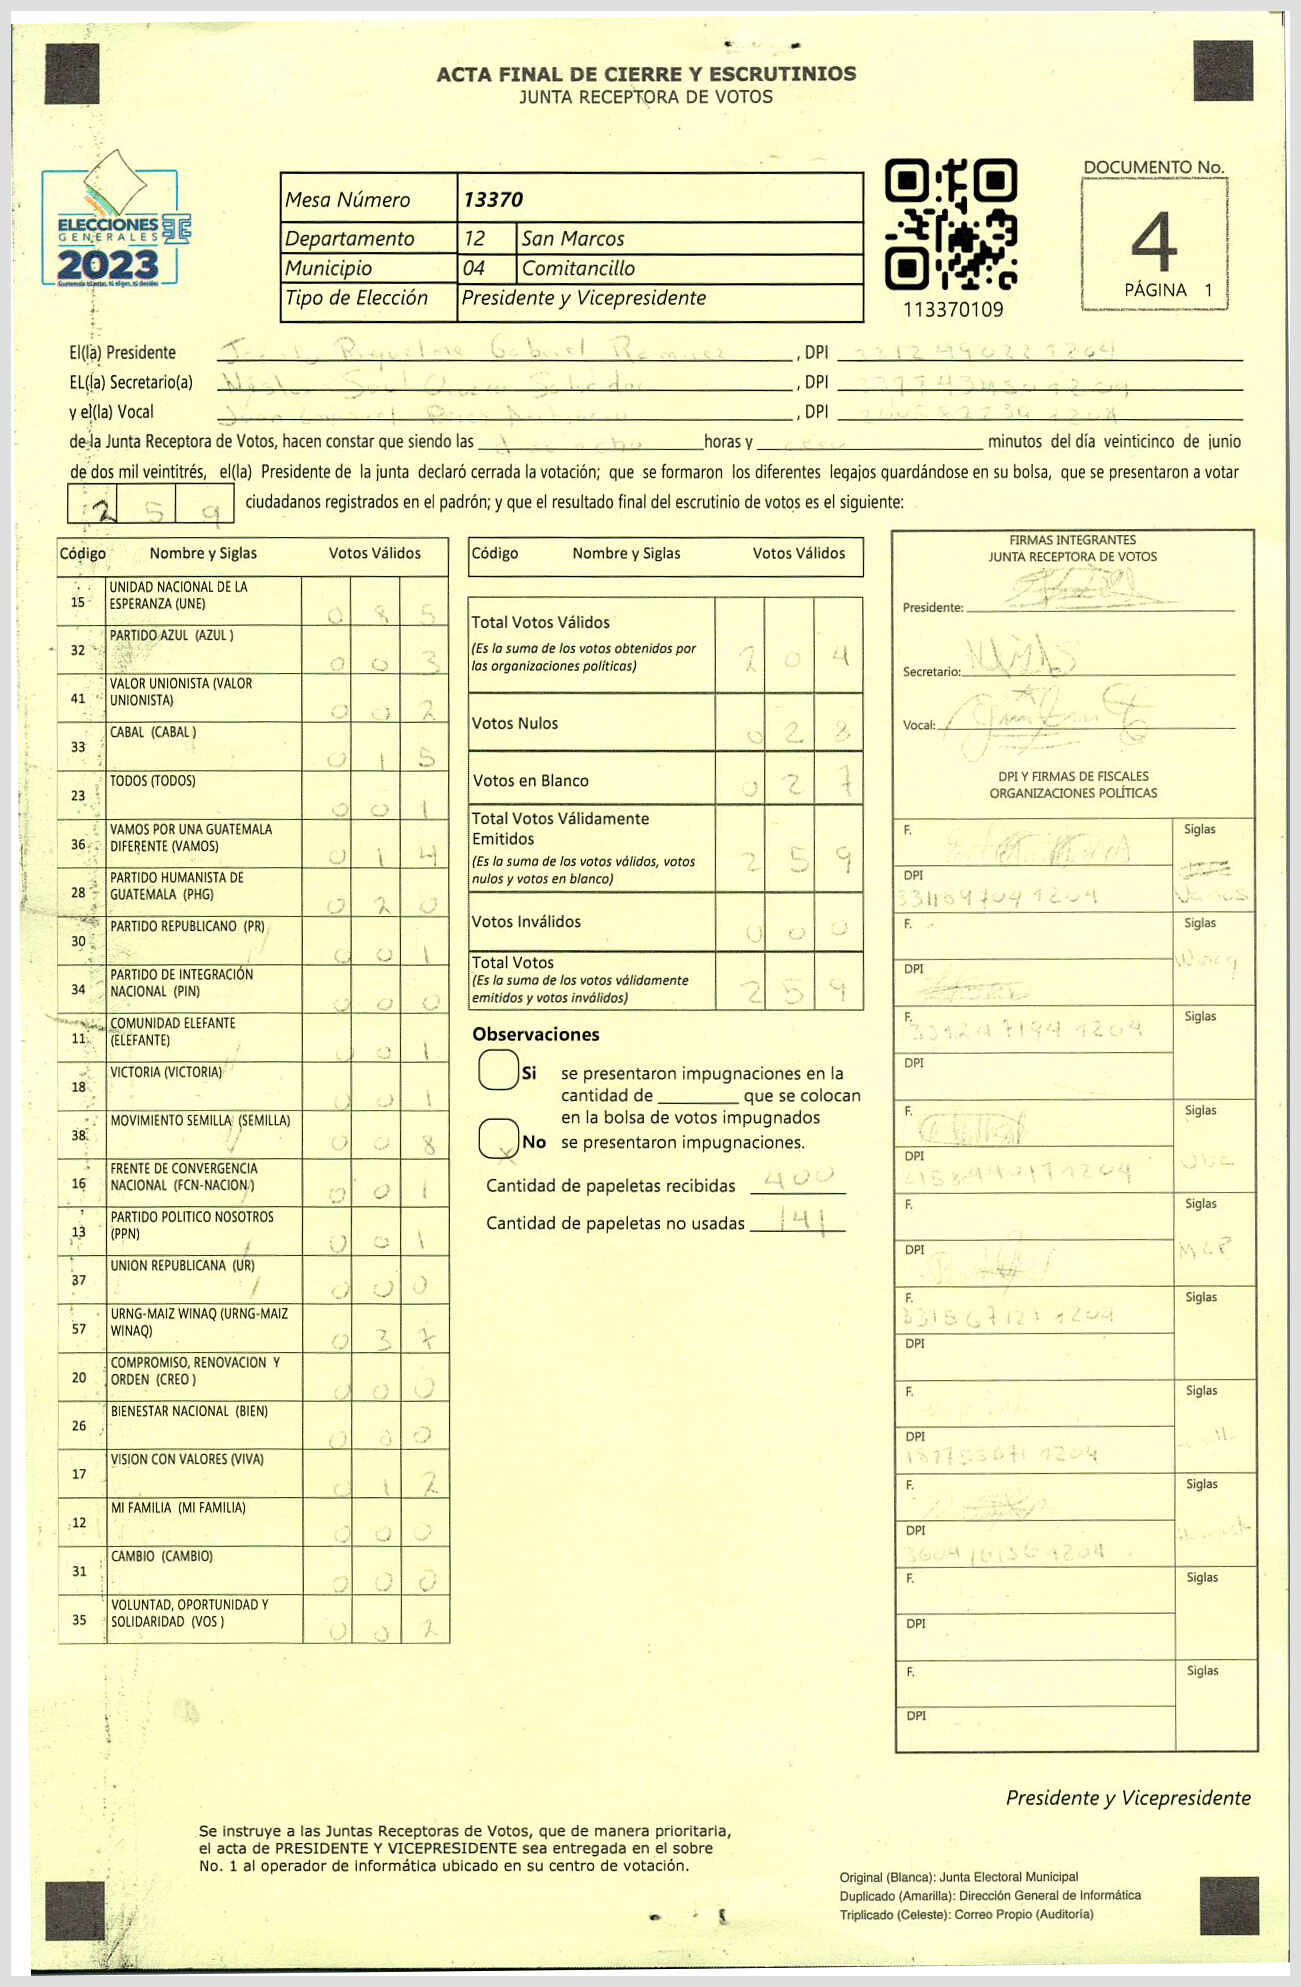 ACTA FINAL DE CIERRE Y ESCRUTINIOS
JUNTA RECEPTORA DE VOTOS
ELECCIONES
GENERALES
2023
Mesa Número 13370
Departamento 12 San Marcos
Municipio 04 Comitancillo
Tipo de Elección Presidente y Vicepresidente
113370109
DOCUMENTO No.
4
PÁGINA 1
El(la) Presidente Riquelme Gabriel Ramirez , DPI
EL(la) Secretario(a) , DPI
y el(la) Vocal , DPI
de la Junta Receptora de Votos, hacen constar que siendo las horas y cero minutos del día veinticinco de junio
de dos mil veintitrés, el(la) Presidente de la junta declaró cerrada la votación; que se formaron los diferentes legajos guardándose en su bolsa, que se presentaron a votar
2 5 9 ciudadanos registrados en el padrón; y que el resultado final del escrutinio de votos es el siguiente:
Código Nombre y Siglas Votos Válidos
15 UNIDAD NACIONAL DE LA ESPERANZA (UNE) 0 8 5
32 PARTIDO AZUL (AZUL ) 0 0 3
41 VALOR UNIONISTA (VALOR UNIONISTA) 0 0 2
33 CABAL (CABAL ) 0 1 5
23 TODOS (TODOS) 0 0 1
36 VAMOS POR UNA GUATEMALA DIFERENTE (VAMOS) 0 1 4
28 PARTIDO HUMANISTA DE GUATEMALA (PHG) 0 2 0
30 PARTIDO REPUBLICANO (PR) 0 0 1
34 PARTIDO DE INTEGRACIÓN NACIONAL (PIN) 0 0 0
11 COMUNIDAD ELEFANTE (ELEFANTE) 0 0 1
18 VICTORIA (VICTORIA) 0 0 1
38 MOVIMIENTO SEMILLA (SEMILLA) 0 0 8
16 FRENTE DE CONVERGENCIA NACIONAL (FCN-NACION) 0 0 1
13 PARTIDO POLITICO NOSOTROS (PPN) 0 0 1
37 UNION REPUBLICANA (UR) 0 0 0
57 URNG-MAIZ WINAQ (URNG-MAIZ WINAQ) 0 3 7
20 COMPROMISO, RENOVACION Y ORDEN (CREO ) 0 0 0
26 BIENESTAR NACIONAL (BIEN) 0 0 0
17 VISION CON VALORES (VIVA) 0 1 2
12 MI FAMILIA (MI FAMILIA) 0 0 0
31 CAMBIO (CAMBIO) 0 0 0
35 VOLUNTAD, OPORTUNIDAD Y SOLIDARIDAD (VOS ) 0 0 2
Código Nombre y Siglas Votos Válidos
Total Votos Válidos 2 0 4
(Es la suma de los votos obtenidos por
las organizaciones políticas)
Votos Nulos 0 2 8
Votos en Blanco 0 2 7
Total Votos Válidamente
Emitidos 2 5 9
(Es la suma de los votos válidos, votos
nulos y votos en blanco)
Votos Inválidos 0 0 0
Total Votos 2 5 9
(Es la suma de los votos válidamente
emitidos y votos inválidos)
Observaciones
Si se presentaron impugnaciones en la
cantidad de ________ que se colocan
en la bolsa de votos impugnados
X No se presentaron impugnaciones.
Cantidad de papeletas recibidas 400
Cantidad de papeletas no usadas 141
FIRMAS INTEGRANTES
JUNTA RECEPTORA DE VOTOS
Presidente:
Secretario:
Vocal:
DPI Y FIRMAS DE FISCALES
ORGANIZACIONES POLÍTICAS
F. Siglas
DPI Vamos
F. Siglas
DPI Winaq
F. Siglas
DPI
F. Siglas
DPI
F. Siglas
DPI
F. Siglas
DPI
F. Siglas
DPI
F. Siglas
DPI
F. Siglas
DPI
F. Siglas
DPI
Presidente y Vicepresidente
Se instruye a las Juntas Receptoras de Votos, que de manera prioritaria,
el acta de PRESIDENTE Y VICEPRESIDENTE sea entregada en el sobre
No. 1 al operador de informática ubicado en su centro de votación.
Original (Blanca): Junta Electoral Municipal
Duplicado (Amarilla): Dirección General de Informática
Triplicado (Celeste): Correo Propio (Auditoría)